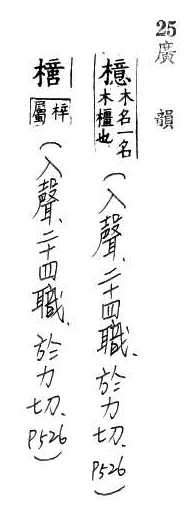 25 廣韻
檍 木名一名木橿也 (入聲、二十四職、於力切、P526)
梓屬 (入聲、二十四職、於力切、P526)